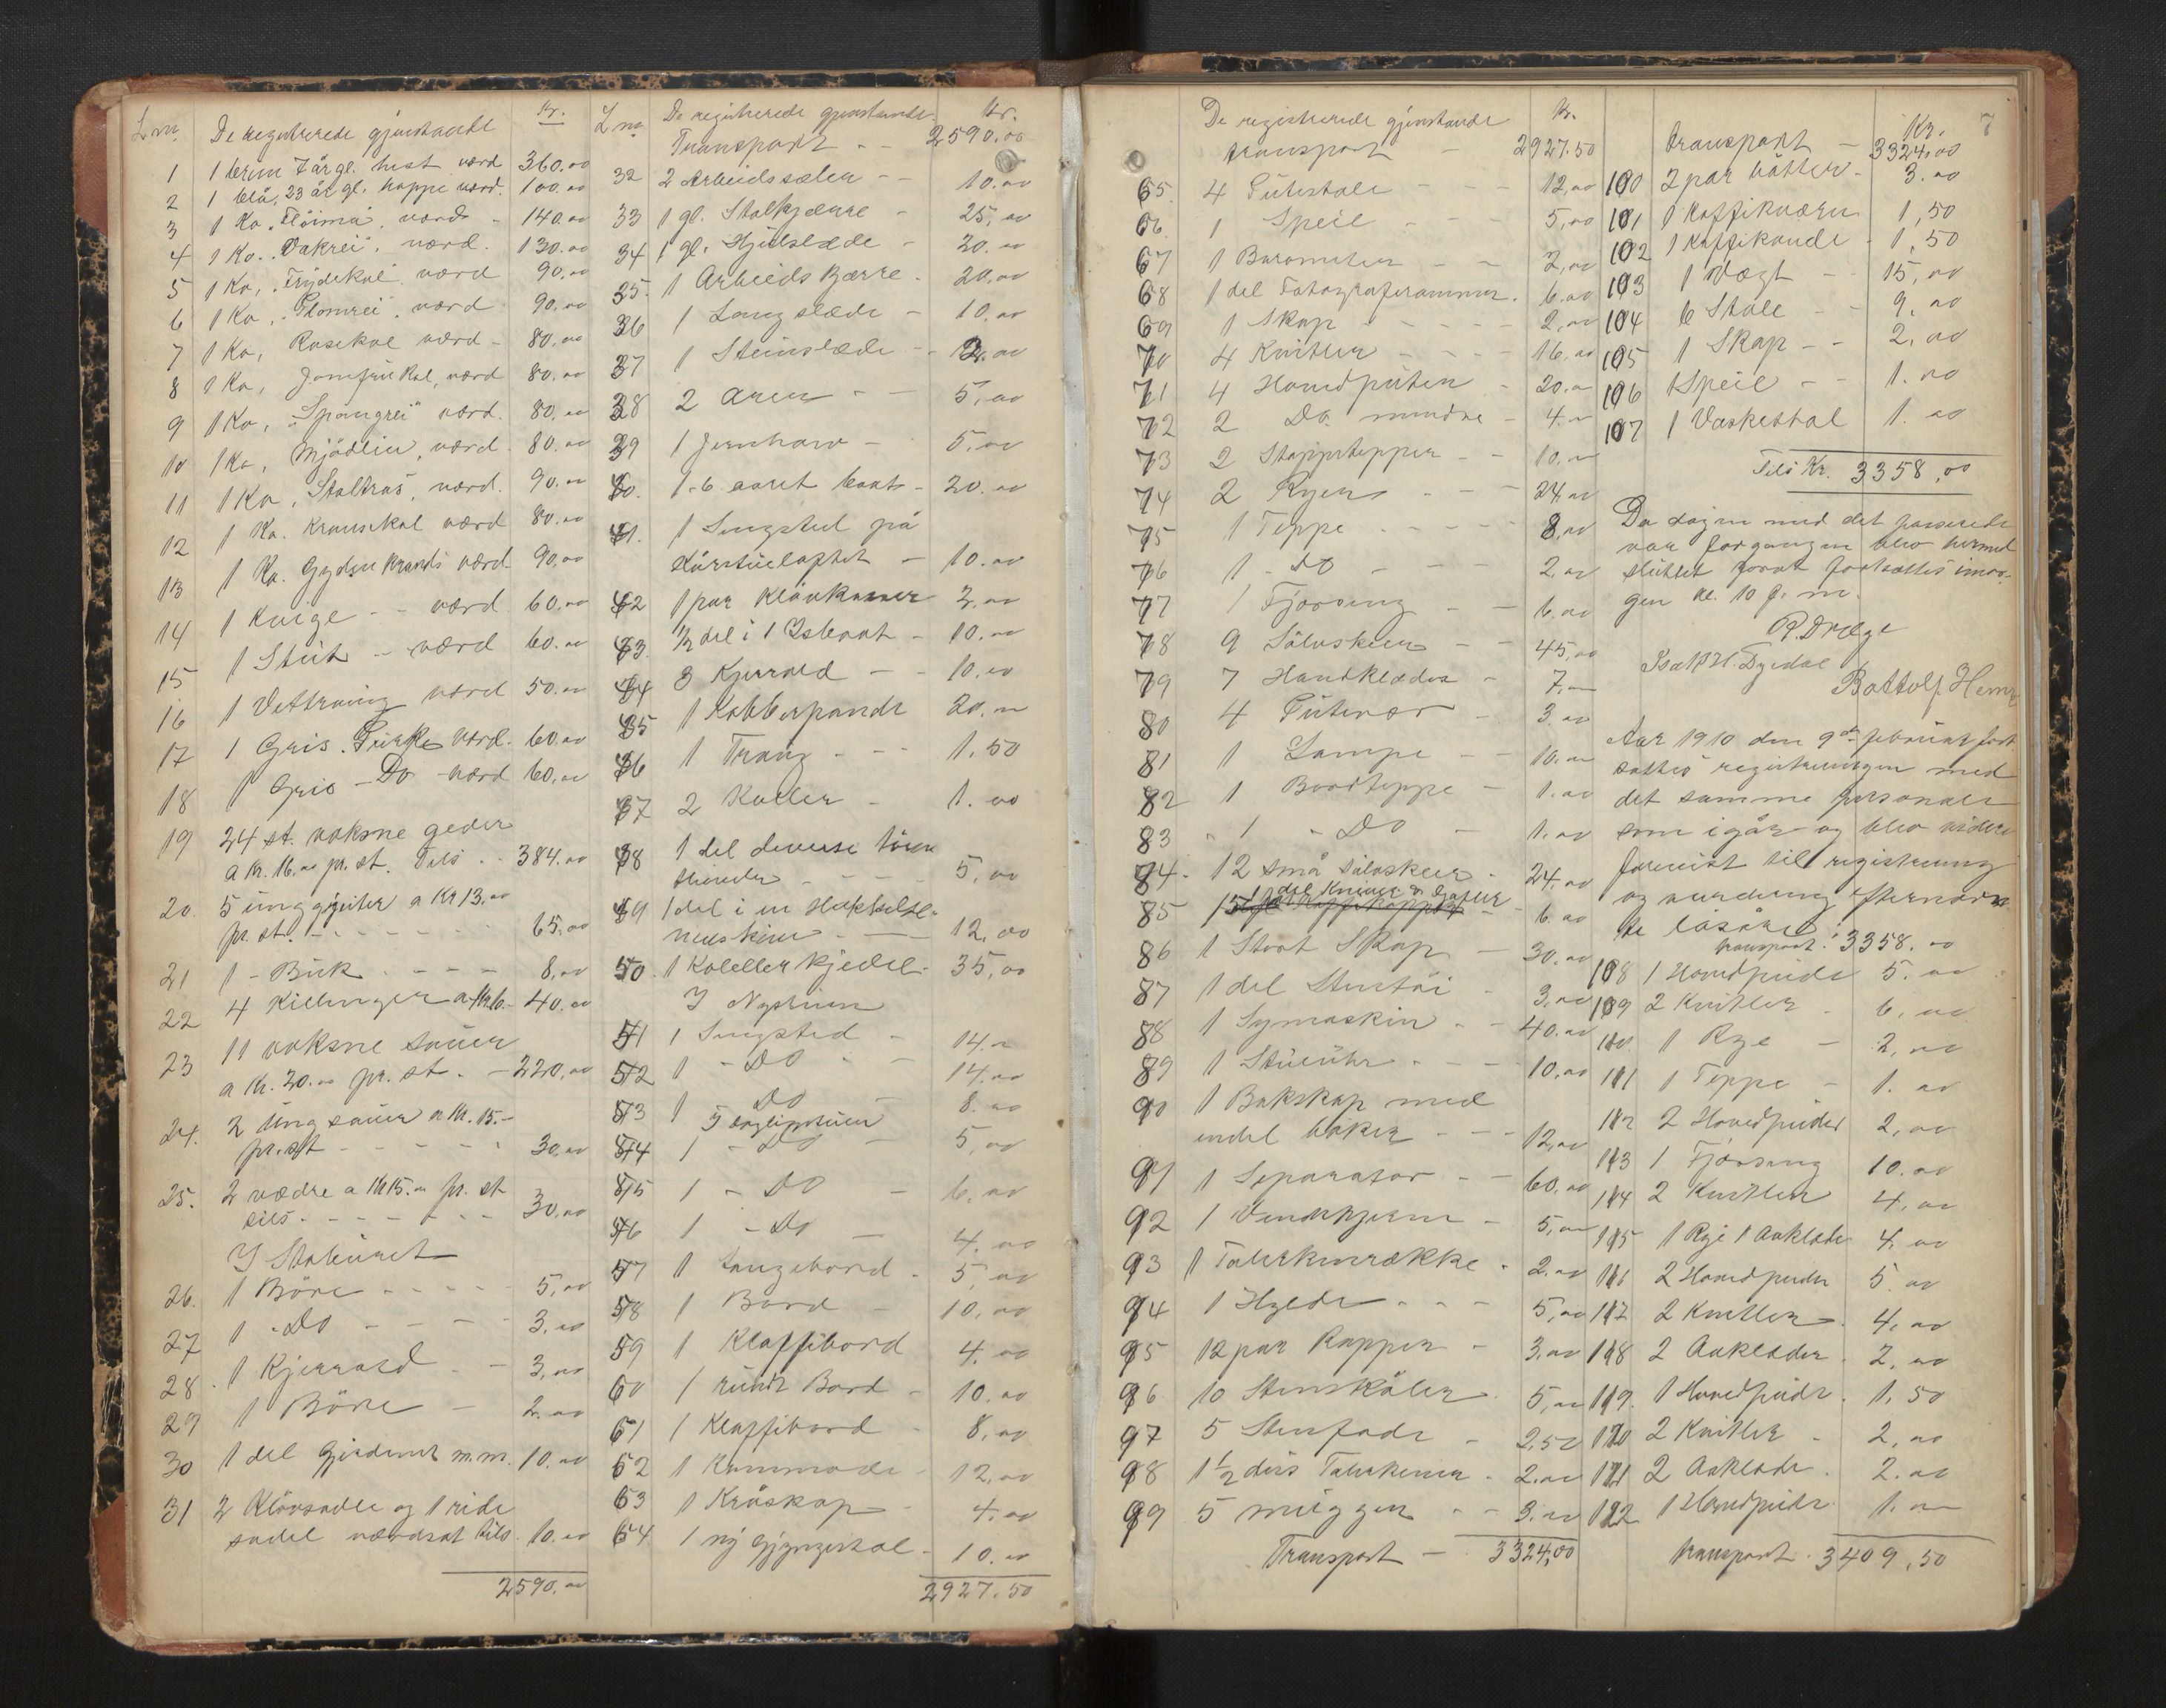 L nr. De registrerede gjenstande Kr.
1 1 brun 7 år gl. hest værd 360.00
2 1 blå, 23 år gl. hoppe værd. 100.00
3 1 Ko "Flöima", værd - 140.00
4 1 Ko. "Vakrei", værd. 130.00
5 1 Ko, "Frydekol" værd 90.00
6 1 Ko, "Blomrei", værd 90.00
7 1 Ko, Rosekol værd - 80.00
8 1 Ko, Jomfrukol, værd 80.00
9 1 Ko, "Spangrei" værd. 80.00
10 1 Ko, Mjödlin, værd. 80.00
11 1 Ko, Staltros, værd. 90.00
12 1 Ko. Kransekol værd 80.00
13 1 Ko. Gyldenkrands værd 90.00
14 1 Kvige - - værd 60.00
15 1 Stut - værd 60.00
16 1 Vettrung værd 50.00
17 1 Gris. Purke værd. 60.00
18 1 Gris - Do værd 60.00
19 24 st. voksne geder
a kr. 16.00 pr. st. Tils . . 384.00
20. 5 ung gjeiter a Kr 13.00
pr. st. - - - - 65.00
21 1 - Buk - - - - 8.00
22 4 Killinger a Kr - 40.00
23 11 voksne sauer
a kr. 20.00 pr. st. - 220.00
24. 2 ung sauer a Kr. 15.-
pr. st - - - - 30.00
25. 2 vædre a Kr 15.00 pr. st
tils. - - - - - 30.00
I Staburet
26. 1 Böre - - - - 5.00
27 1 - Do - - - - 3.00
28. 1 Kjerrald - - 3.00
29 1 Böre - 2.00
30 1 del Gjerdener m.m. 10.00
31 2 Klövsadle og 1 ride
sadel værdsat tils. 10.00
2590.00
L nr. De registrerede gjenstande Kr.
Transport - - 2590.00
32 2 Arbeidssæler - - 10.00
33 1 gl. Stolkjærre - 25.00
34 1 gl. Hjulslæde - 20.00
35. 1 Arbeidskjærre. 20.00
36 1 Langslæde - 10.00
37 1 Steinslæde - 2.00
38 2 Arer - - 5.00
39 1 Jernharv - 5.00
40. 1 - 6 aaret baat - 20.00
41. 1 Sengsted på
Kårstueloftet - 10.00
42 1 par Klövkasser 2.00
43. 1/2 del i 1 - 10.00
44 3 Kjerrald - - 10.00
45 1 Kobberpande 20.00
46 1 Traug - - - 1.50
47 2 Koller - 1.00
48 1 del diverse
- - - - 5.00
49 1 del i en Hakkelse-
maskine - 12.00
50. 1 Kolellerkjedel - 35.00
I Nystuen
51 1 Sengsted - 14.00
52 1 - Do - 14.00
53 1 Do 8.00
I dagligstuen
54 1 - Do 5.00
55 1 - Do - 6.00
56 1 - Do - 4.00
57 1 Langebord - 5.00
58 1 Bord - 10.00
59 1 Klaffibord 4.00
60 1 rundt Bord - 10.00
61 1 Klaffibord - 8.00
62 1 Kommode - 12.00
63 1 Kråskap - 4.00
64 1 ny Gjyngestol - 10.00
2927.50
De registrerede gjenstande Kr.
transport - 2927.50
65. 4 Putestole - - - 12.00
66. 1 Speil - - - 5.00
67 1 Barometer - - 2.00
68 1 del Fotograferammer. 6.00
69 1 Skap - - - - 2.00
70 4 Kvitler - - - - 16.00
71 4 Hovedputer - 20.00
72 2 Do. mindre - 4.00
73 2 Stoppetepper - - 10.00
74 2 Ryer - - - 24.00
75 1 Teppe - - - - - 8.00
76 1 - Do - - - - 2.00
77 1 Fjorseng - - 6.00
78 9 Sölvskeer - - 45.00
79 7 Handklæder - 7.00
80 4 Putevar - 3.00
81 1 Lampe - - 10.00
82 1 Bordteppe - 1.00
83 - 1 - Do - 1.00
84. 12 små sölvskeer - 24.00
85 1 del Kniver & Gafler - 6.00
86 1 Stort Skap - 30.00
87 1 del Stentöi - 3.00
88 1 Symaskin - - 40.00
89 1 Stueuhr - - - 10.00
90 1 Bokskap med
endel böker - - - 12.00
91 1 Separator - - 60.00
92 1 - 5.00
93 1 Talerkenrække - 2.00
94 1 Hylde - - - 5.00
95 12 par Kopper - 3.00
96 10 Stenskåler - 5.00
97 5 Stenfade - 2.50
98 1 1/2 dus Talerkener - 2.00
99 5 muggen - - 3.00
Transport - 3324.00
7
Kr.
transport - 3324.00
100 2 par bötter - 3.00
101 1 Kaffikværn 1.50
102 1 Kaffikande - 1.50
103 1 Vægt - - 15.00
104 6 Stole - - 9.00
105 1 Skap - - 2.00
106 1 Speil - - 1.00
107 1 Vaskestol 1.00
Tils Kr. 3358.00
Da dagen med det passerede
var forgangen blev hermed
sluttet forat fortsættes imor-
gen kl. 10 f. m.
R. Dræge
Isak H. Dyrdal
Bottolf Hem
Aar 1910 den 9de februar fort
sattes registreringen med
det samme personale
som igår og blev videre
forevist til registrering
og vurdering efternævn-
te lösöre:
transport: 3358.00
108 1 Hovedpude 5.00
109 2 Kvitler - 6.00
110 1 Rye - 2.00
111 1 Teppe - 1.00
112 2 Hovedpuder 2.00
113 1 Fjorseng 10.00
114 2 Kvitler 4.00
115 1 Rye 1 Aaklæde 4.00
116 2 Hovedpuder 5.00
117 2 Kvitler 4.00
118 2 Aaklæder 2.00
119. 1 Hovedpude. 1.50
120 2 Kvitler - 2.00
121 2 Aaklæde. 2.00
122 1 Hovedpude 1.00
transport. 3409.50